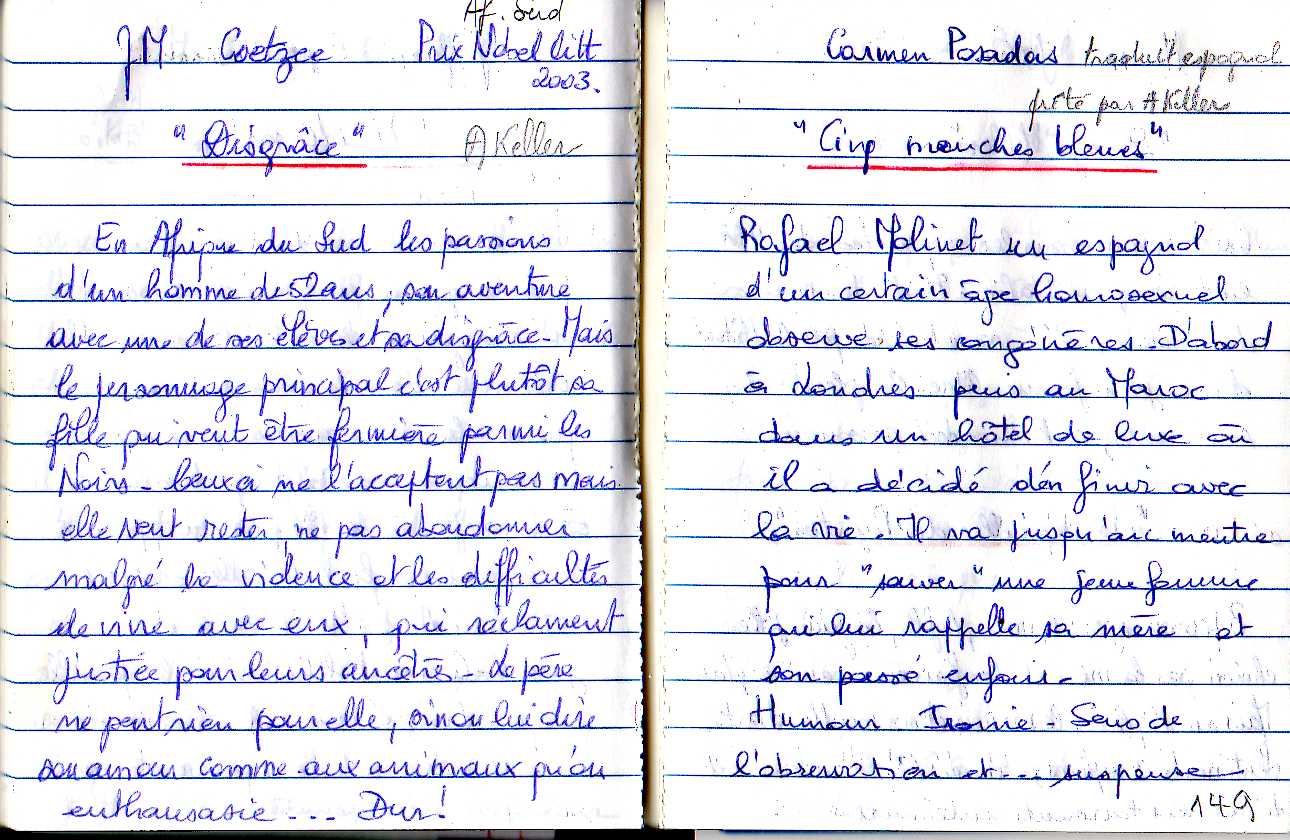 Af. Sud
JM Coetzee Prix Nobel Litt
2003.
"Disgrâce" A Keller
En Afrique du Sud les passions
d'un homme de 52 ans, son aventure
avec une de ses élèves et sa disgrâce - Mais
le personnage principal c'est plutôt sa
fille qui veut être fermière parmi les
Noirs - Ceux ci ne l'acceptent pas mais
elle veut rester, ne pas abandonner
malgré la violence et les difficultés
de vivre avec eux, qui réclament
justice pour leurs ancêtres - Le père
ne peut rien pour elle, sinon lui dire
son amour comme aux animaux qu'on
enthanasasie ... Dur!
Carmen Posadas traduit espagnol
prêté par A Keller
"Cinq mouches bleues"
Rafael Molinet un espagnol
d'un certain âge homosexuel
observe ses congénères. D'abord
à Londres puis au Maroc
dans un hôtel de luxe où
il a décidé d'en finir avec
la vie. Il va jusqu'au meutre
pour "sauver" une jeune femme
qui lui rappelle sa mère et
son passé enfoui -
Humour Ironie - Sens de
l'observation et ... suspense
149